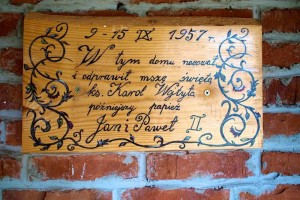 9-15 IX. 1957 r.
W tym domu nocował
i odprawił mszę świętą
ks. Karol Wojtyła
późniejszy papież
Jan Paweł II